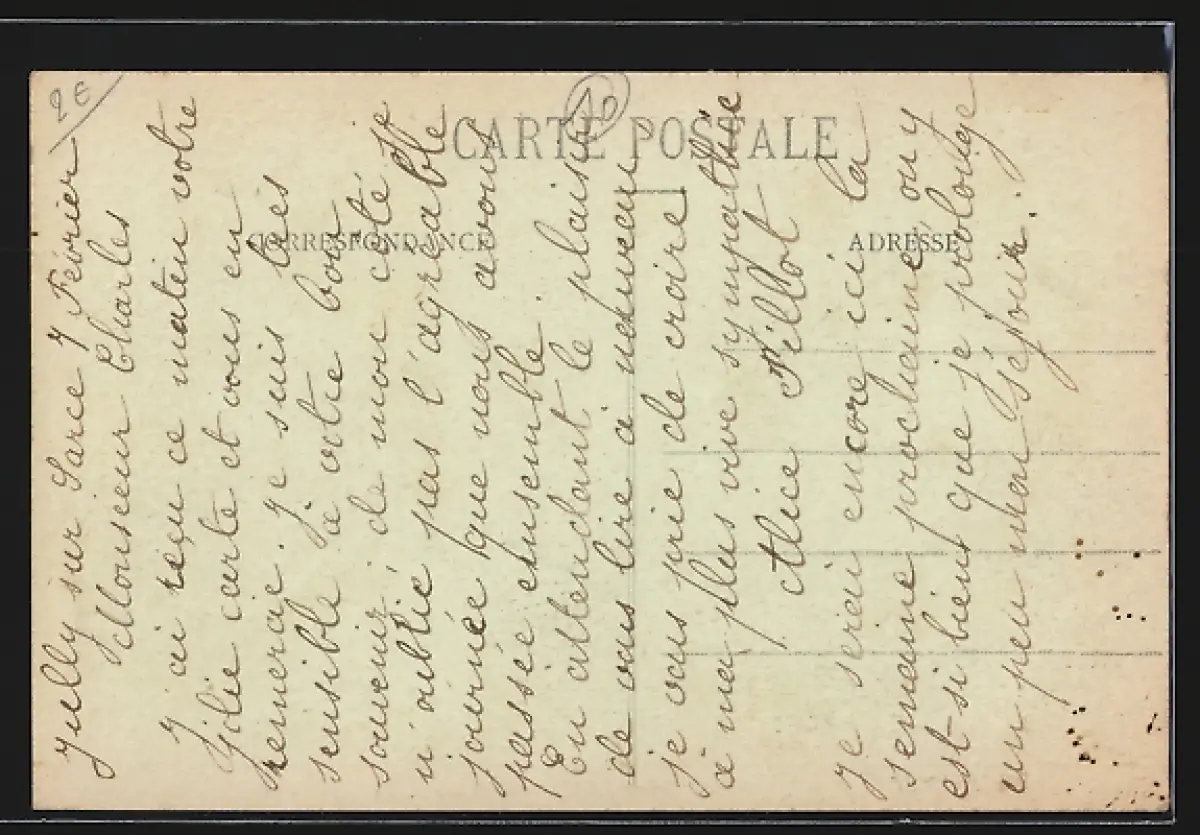 2 €
CARTE POSTALE
CORRESPONDANCE
ADRESSE
Juilly sur Sarce 7 Février
Monsieur Charles
J'ai reçu ce matin votre
jolie carte et vous en
remerçie. Je suis très
sensible à votre bon
souvenir; de mon côté je
n'oublie pas l'agréable
journée que nous avons
passée ensemble.
En attendant le plaisir
de vous lire à nouveau
je vous prie de croire
à ma plus vive sympathie
Alice Pillot
Je serai encore ici la
semaine prochaine on y
est si bien que je prolonge
un peu mon séjour.